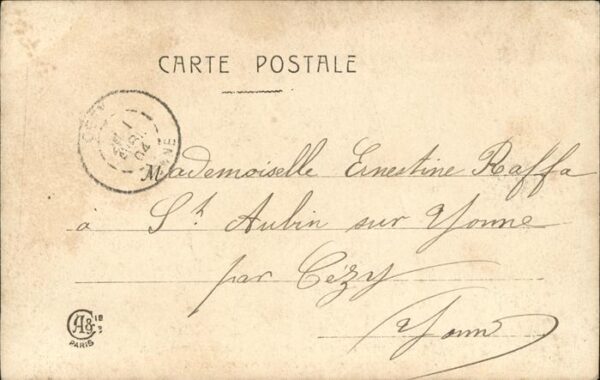 CARTE POSTALE
CEZY
1
04
YONNE
Mademoiselle Ernestine Raffa
à St Aubin sur Yonne
par Cézy
Yonne
PARIS